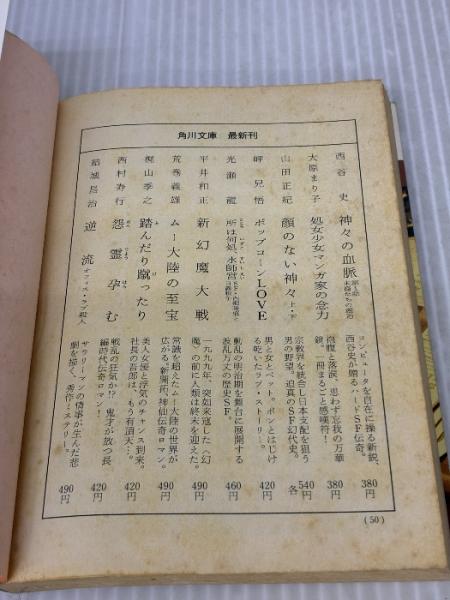 角川文庫 最新刊
西谷 史 神々の血脈 第1話
コンピュータを自在に操る新鋭、
西谷史が贈るハードSF伝奇。
380円
大原まり子 処女少女マンガ家の念力
抱腹と落涙、思わず忘我の万華
鏡。一冊まるごと感嘆符!
380円
山田正紀 顔のない神々 上・下
宗教界を統合し日本支配を狙う
男の野望。迫真のSF幻代史。
各540円
岬 兄悟 ポップコーンLOVE
男と女とペット。ポンとはじけ
る乾いたラブ・ストーリー。
420円
光瀬 龍 所は何処、水師営
動乱の明治期を舞台に展開する
波乱万丈の歴史SF。
460円
平井和正 新幻魔大戦
一九九九年、突如来寇した〈幻
魔〉の前に人類は終末を迎えた。
490円
荒巻義雄 ムー大陸の至宝
常識を超えたムー大陸の世界が
広がる、新開拓、神仙伝奇ロマン。
490円
梶山季之 踏んだり蹴ったり
美人女優と浮気のチャンス到来。
社長の吾郎は、もう有頂天…。
420円
西村寿行 怨霊孕む
戦乱の狂気か!? 鬼才が放つ長
編時代伝奇ロマン!
420円
結城昌治 逆流 オフィス・ラブ殺人
サラリーマンの情事が生んだ悲
劇を描く、秀作ミステリー。
490円
(50)